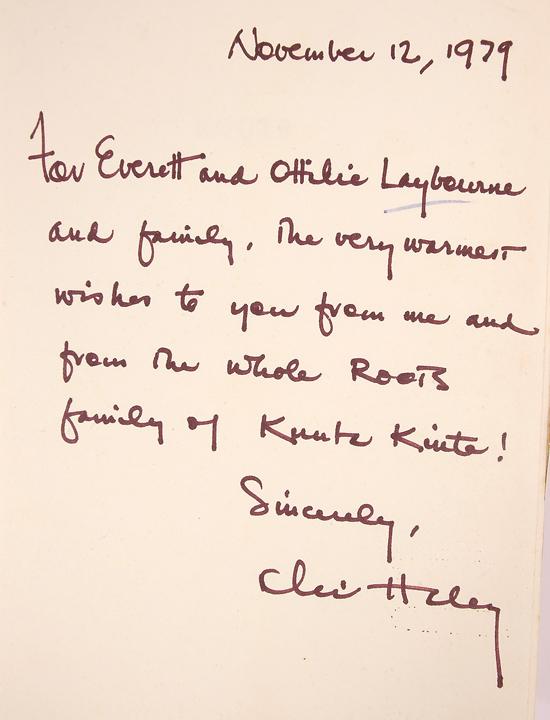 November 12, 1979
For Everett and Ottilie Laybourne
and family, The very warmest
wishes to you from me and
from The whole Roots
family of Kunta Kinte!
Sincerely,
Alex Haley